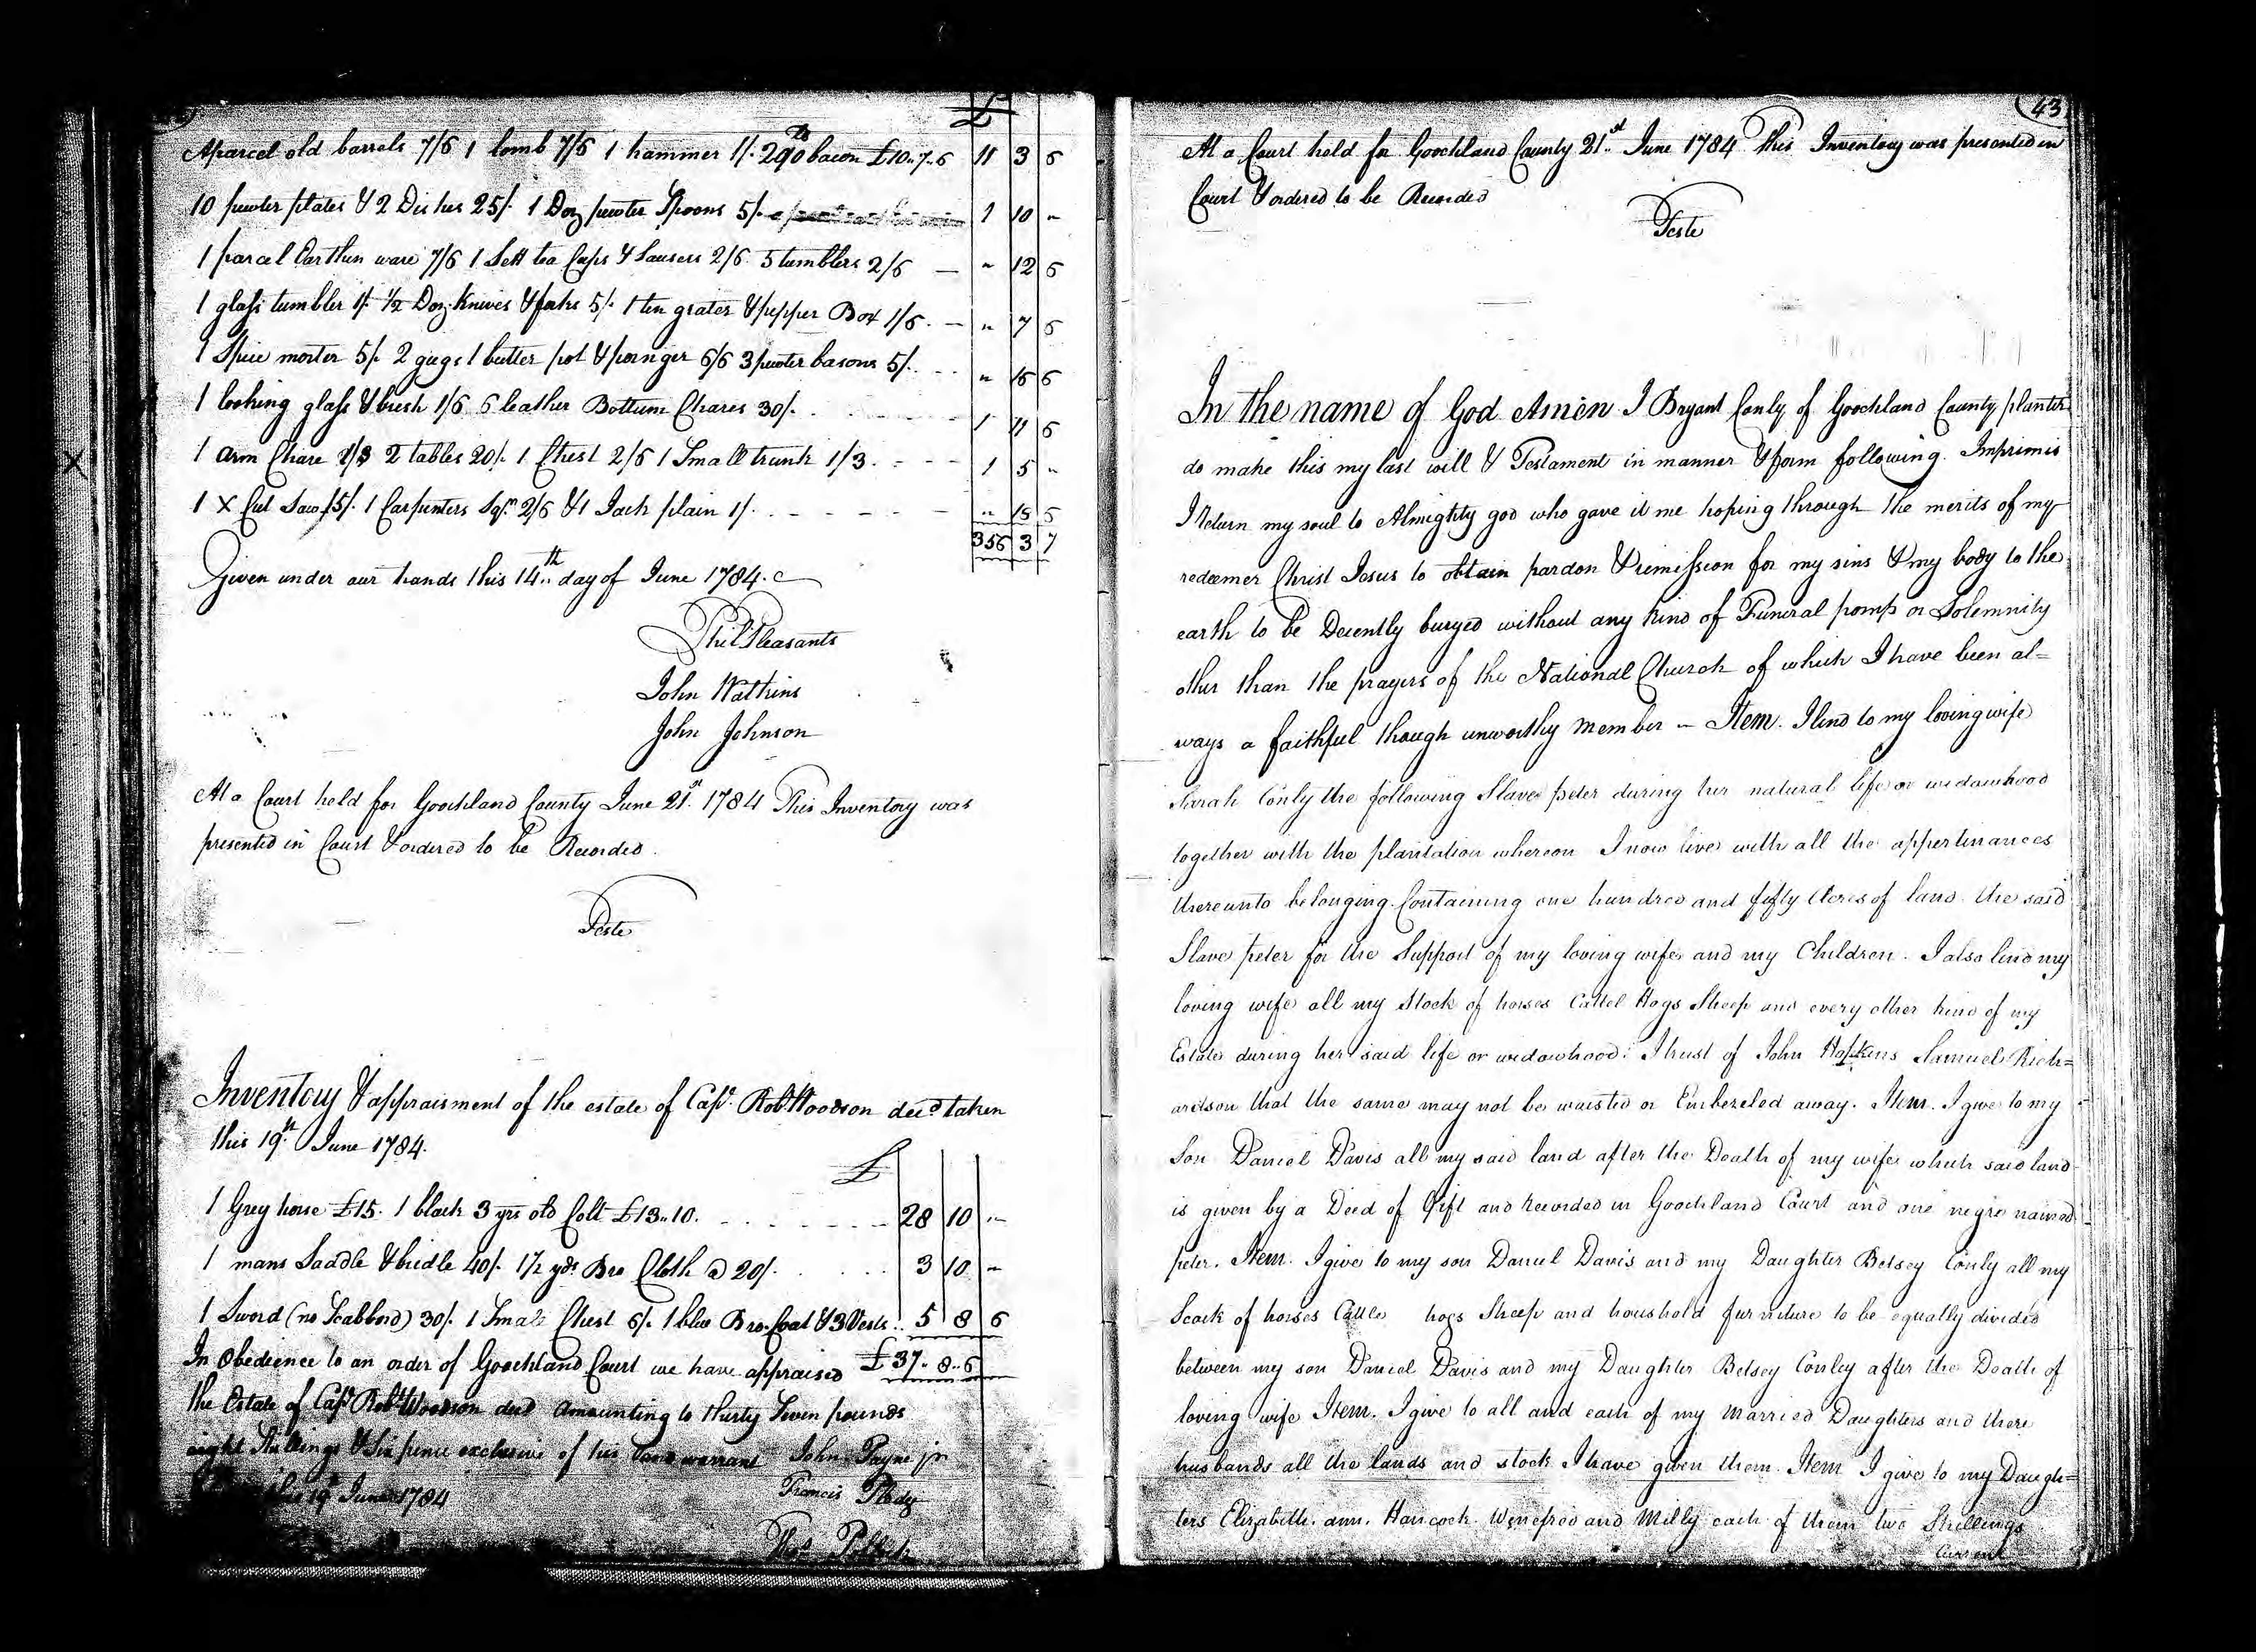 £
A parcel old barrels 7/6 1 comb 7/6 1 hammer 1/. 290 lb bacon £10..7..6 11 3 6
10 pewter plates & 2 Dishes 25/. 1 Doz pewter Spoons 5/. 1 10 "
1 parcel Earthen ware 7/6 1 Sett tea Cups & Sausers 2/6. 5 tumblers 2/6 — " 12 6
1 glass tumbler 1/. ½ Doz. Knives & forks 5/. 1 tin grater & pepper Box 1/6. — " 7 6
1 Spice morter 5/. 2 gugs 1 butter pot & poringer 6/6 3 pewter basons 5/. " 16 6
1 looking glass & brush 1/6 6 leather Bottum Chares 30/. 1 11 6
1 arm Chare 2 tables 20/. 1 Chest 2/6 1 Small trunk 1/3. 1 5 "
1 X Cut Saw 15/. 1 Carpenters Sqr. 2/6 & 1 Jack plain 1/. " 18 6
356 3 7
Given under our hands this 14th day of June 1784.
Phil Pleasants
John Watkins
John Johnson
At a Court held for Goochland County June 21st 1784 This Inventory was
presented in Court & ordered to be Recorded.
Teste
Inventory & appraisment of the estate of Capt. Robt. Woodson decd taken
this 19th June 1784.
£
1 Grey horse £15. 1 black 3 yrs old Colt £13..10. 28 10 "
1 mans Saddle & bridle 40/. 1½ yds Bro Cloth @ 20/. 3 10 "
1 Sword (no Scabbord) 30/. 1 Small Chest 6/. 1 blue Bro. Coat & 3 Vests 5 8 6
In Obedience to an order of Goochland Court we have appraised £37..8..6
the Estate of Capt Robt Woodson decd amounting to thirty Seven pounds
eight Shillings & Six pence exclusive of his land warrant John Payne jr
this 19th June 1784 Francis
43
At a Court held for Goochland County 21st June 1784 This Inventory was presented in
Court & ordered to be Recorded
Teste
In the name of God Amen I Bryant Conly of Goochland County planter
do make this my last will & Testament in manner & form following. Imprimis
I Return my soul to Almighty god who gave it me hoping through the merits of my
redeemer Christ Jesus to obtain pardon & remission for my sins & my body to the
earth to be Decently buryed without any kind of Funeral pomp or Solemnity
other than the prayers of the National Church of which I have been al=
ways a faithful though unworthy member — Item. I lend to my loving wife
Sarah Conly the following Slave peter during her natural life or widowhood
together with the plantation whereon I now live with all the appertinances
thereunto belonging. Containing one hundred and fifty Acres of land the said
Slave peter for the Support of my loving wife and my Children. I also lend my
loving wife all my Stock of horses Cattel Hogs Sheep and every other kind of my
Estate during her said life or widowhood. I trust of John Hopkins Samuel Rich=
ardson that the same may not be waisted or Embezeled away. Item. I give to my
Son Daniel Davis all my said land after the Death of my wife which said land
is given by a Deed of Gift and Recorded in Goochland Court and one negro named
peter. Item. I give to my son Daniel Davis and my Daughter Betsey Conly all my
Scock of horses Cattle hogs Sheep and houshold furniture to be equally divided
between my son Daniel Davis and my Daughter Betsey Conley after the Death of
loving wife Item. I give to all and each of my married Daughters and there
husbands all the lands and stock I have given them. Item I give to my Daugh=
ters Elizabeth. ann. Hancock. Winefred and Milly each of them two Shellings
Current